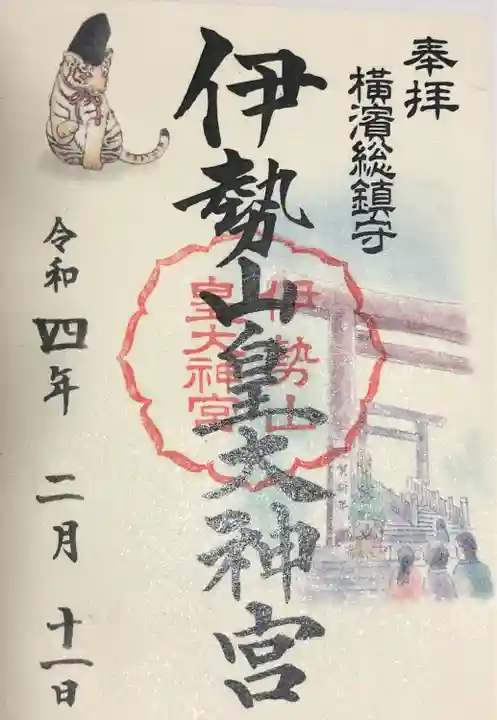 奉拝
横濱総鎮守
伊勢山皇大神宮
伊勢山
皇大神宮
賀新年
令和四年二月十一日